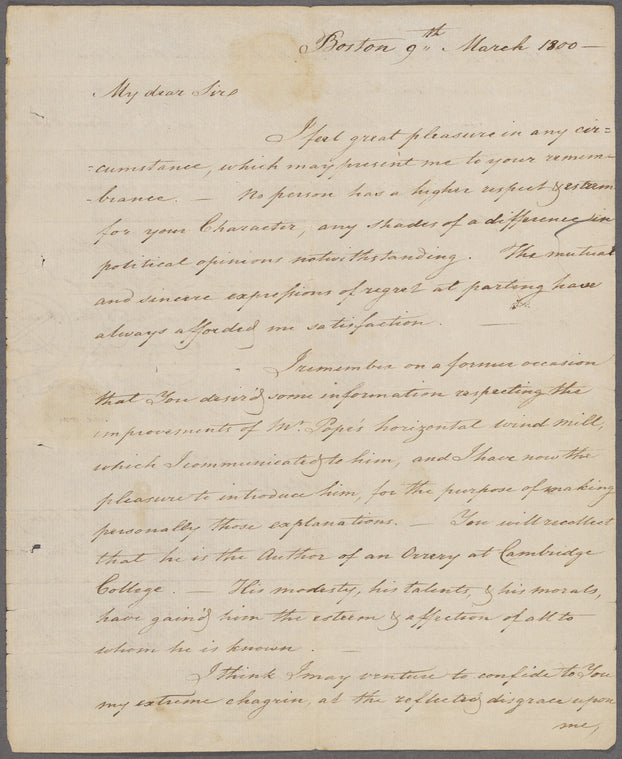 Boston 9th March 1800 —
My dear Sir
I feel great pleasure in any cir=
=cumstance, which may present me to your remem=
-brance. — No person has a higher respect & esteem
for your Character, any shades of a difference in
political opinions notwithstanding. The mutual
and sincere expressions of regret at parting have
always afforded me satisfaction. —
I remember on a former occasion
that You desir'd some information respecting the
improvements of Mr. Pope's horizontal wind mill,
which I communicated to him, and I have now the
pleasure to introduce him, for the purpose of making
personally those explanations. — You will recollect
that he is the Author of an Orrery at Cambridge
College. — His modesty, his talents, & his morals,
have gain'd him the esteem & affection of all to
whom he is known. —
I think I may venture to confide to You
my extreme chagrin, at the reflected disgrace upon
me,